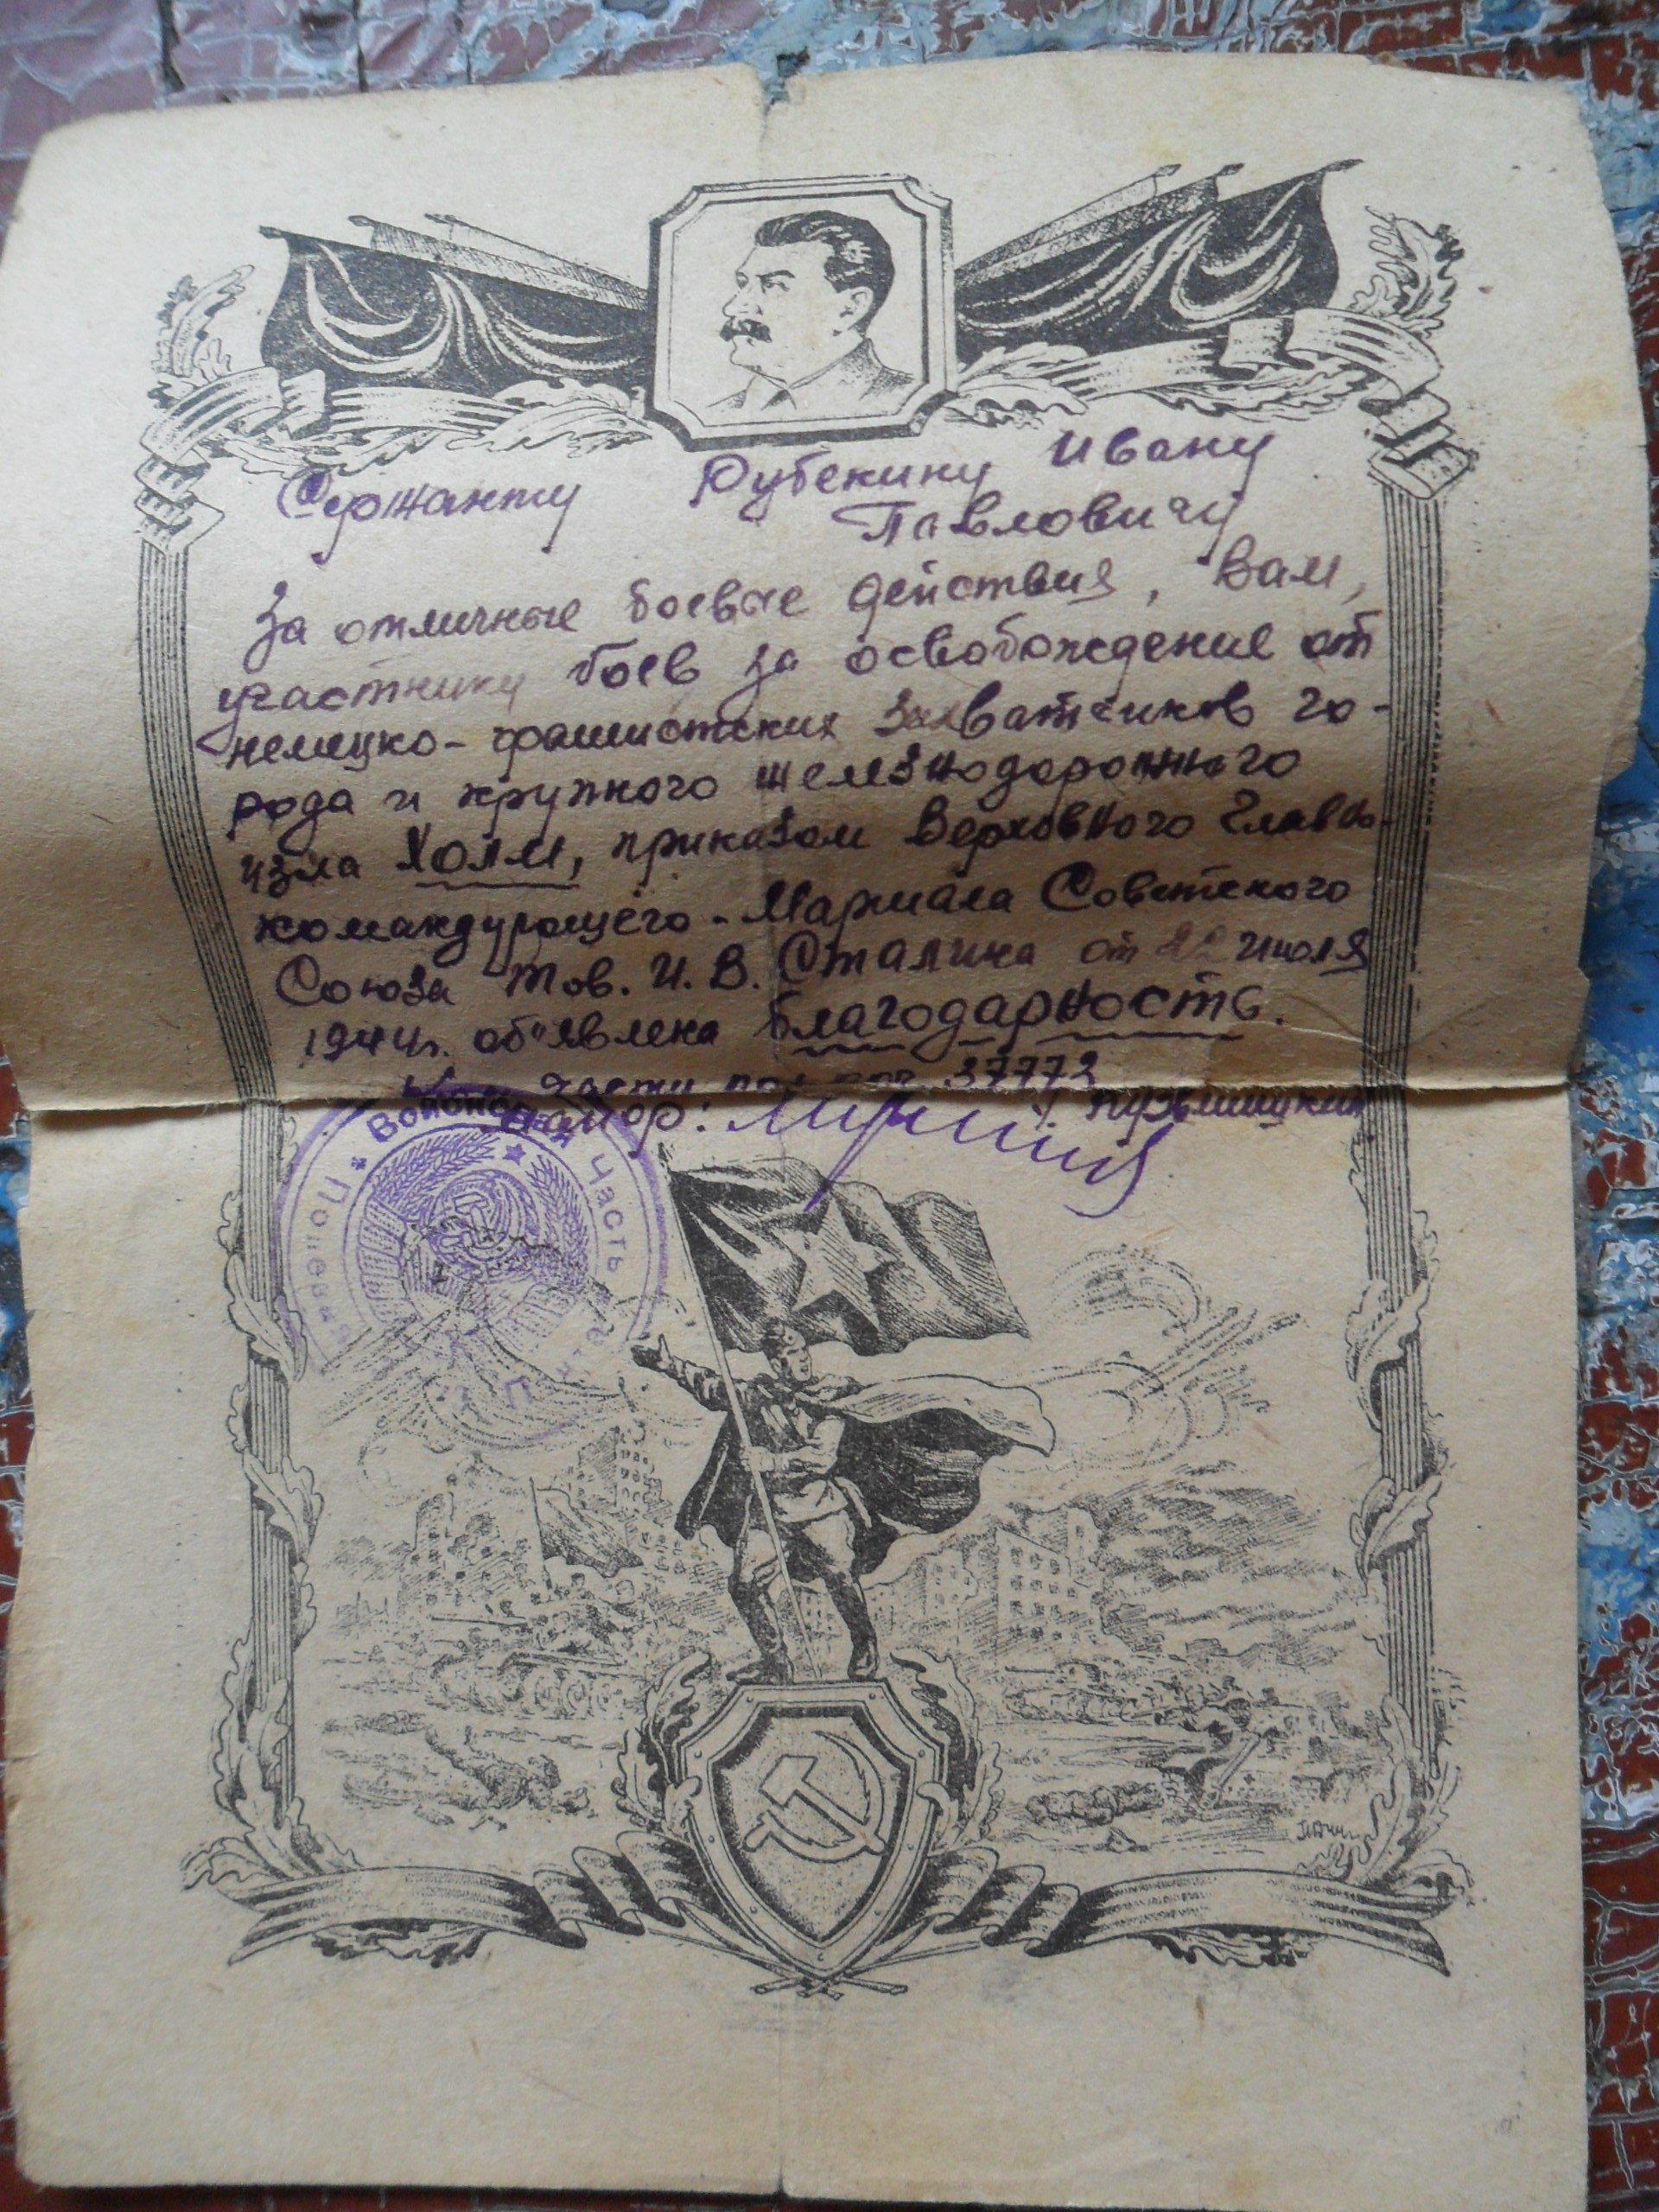 Сержанту Рубекину Ивану
Павловичу
За отличные боевые действия, Вам,
участнику боев за освобождение от
немецко-фашистских захватчиков го-
рода и крупного железнодорожного
узла Холм, приказом Верховного Главно-
командующего - Маршала Советского
Союза Тов. И. В. Сталина от 22 июля
1944г. объявлена благодарность.
части 37773
Майор:
Войсковая Часть
Полевая